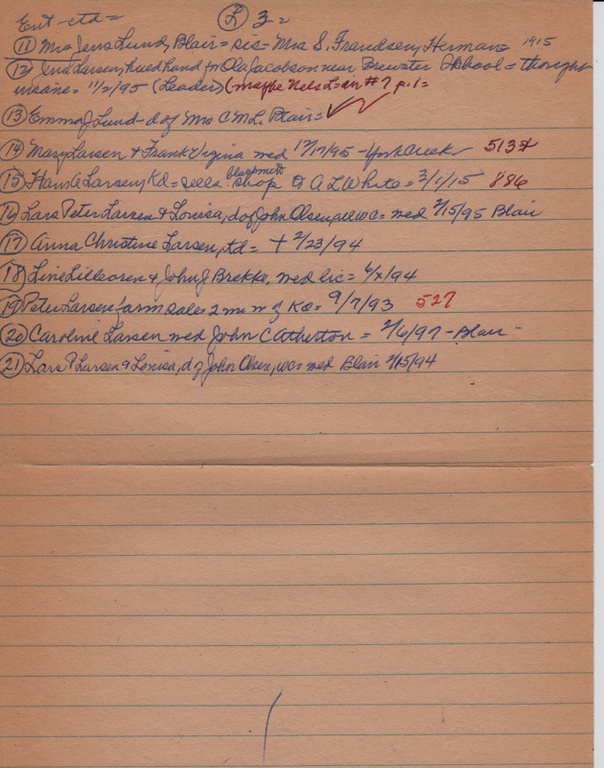 Ent-ctd= (L) 3=
(11) Mrs Jens Lund, Blair= sis= Mrs S. Frandsen, Herman= 1915
(12) Jens Larsen, hired hand for Ola Jacobson near Brewster School = thought
insane= 11/2/95 (Leader) (maybe Nels L= in #7 p.1=
(13) Emma J Lund- d of Mrs C M L. Blair= ✓
(14) Mary Larsen & Frank Virgina med 12/12/95 - York Creek 513*
(15) Hans A Larsen, Kd= sells blacksmith shop to A L White = 3/1/15 886
(16) Lars Peter Larsen & Louisa, d of John Olsen, all WC= med 2/15/95 Blair
(17) Anna Christine Larsen, Kd= + 2/23/94
(18) Line Lilleoren & John J Brekke, med lic= 6/x/94
(19) Peter Larsen farm sale= 2 mi w of Kd= 9/7/93 527
(20) Caroline Larsen med John C Atherton = 2/6/97 - Blair
(21) Lars P Larsen & Louisa, d of John Olsen, WC= med Blair 2/15/94